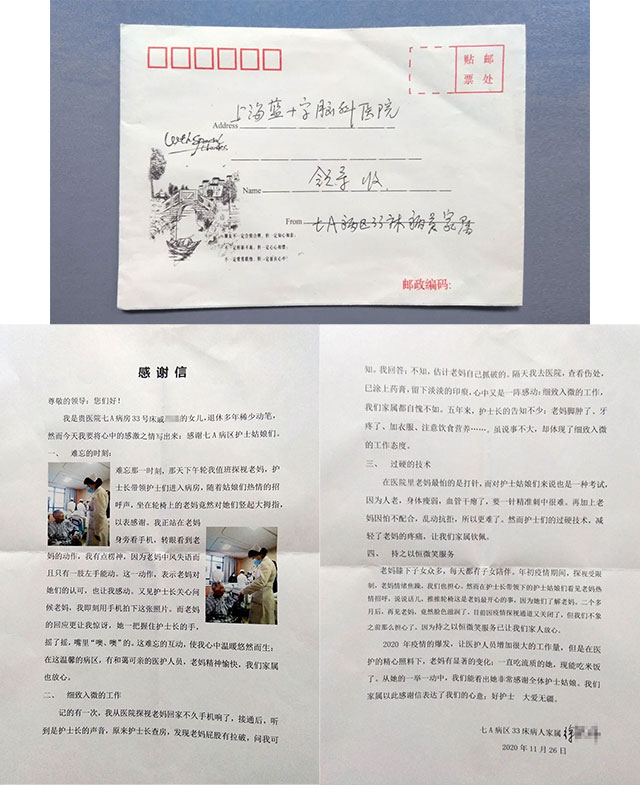 贴 邮
票 处
上海蓝十字脑科医院
Address
With Special
thanks
领导 收
Name
From 七A病区33床病员家属
邮政编码:
感谢信
尊敬的领导:您们好!
我是贵医院七A病房33号床戚 的女儿,退休多年稀少动笔,
然而今天我要将心中的感激之情写出来:感谢七A病区护士姑娘们。
一、 难忘的时刻:
难忘那一刻,那天下午轮我值班探视老妈,护
士长带领护士们进入病房,随着姑娘们热情的招
呼声,坐在轮椅上的老妈竟然对她们竖起大拇指,
以表感谢。我正站在老妈
身旁看手机,转眼看到老
妈的动作,我有点楞神,因为老妈中风失语而
且只有一肢左手能动。这一动作,表示老妈对
她们的认可,也让我感动。又见护士长关心问
候老妈,我即刻用手机拍下这张照片。而老妈
的回应更让我惊讶,她一把握住护士长的手,
摇了摇,嘴里“噢、噢”的。这难忘的互动,使我心中温暖悠然而生;
在这温馨的病区,有和蔼可亲的医护人员,老妈精神愉快,我们家属
也放心。
二、 细致入微的工作
记的有一次,我从医院探视老妈回家不久手机响了,接通后,听
到是护士长的声音,原来护士长查房,发现老妈屁股有拉破,问我可
知。我回答:不知,估计老妈自己抓破的。隔天我去医院,查看伤处,
已涂上药膏,留下淡淡的印痕,心中又是一阵感动:细致入微的工作,
我们家属都自愧不如。五年来,护士长的告知不少:老妈脚肿了、牙
疼了、加衣服、注意饮食营养……。虽说事不大,却体现了细致入微
的工作态度。
三、 过硬的技术
在医院里老妈最怕的是打针,而对护士姑娘们来说也是一种考试,
因为人老,身体瘦弱,血管干瘪了,要一针精准刺中很难。再加上老
妈因怕不配合,乱动抗拒,所以更难了。然而护士们的过硬技术,减
轻了老妈的疼痛,让我们家属钦佩。
四、 持之以恒微笑服务
老妈膝下子女众多,每天都有子女陪伴。年初疫情期间,探视受限
制,老妈情绪焦躁,我们也担心。然而在护士长带领下的护士姑娘们看见老妈热
情招呼,说说话儿,推推轮椅这是老妈最开心的事,因为她们了解老妈。二个多
月后,再见老妈,竟然脸色滋润了。目前因疫情探视通道又关闭了,但我们不象
之前那么担心了。因为持之以恒微笑服务已让我们家人放心。
2020 年疫情的爆发,让医护人员增加很大的工作量,但是在医
护的精心照料下,老妈有显著的变化:一直吃流质的她,现能吃米饭
了。从她的一举一动中,我们能看出她非常感谢全体护士姑娘。我们
家属以此感谢信表达了我们的心意:好护士 大爱无疆。
七A病区33床病人家属
2020年11月26日